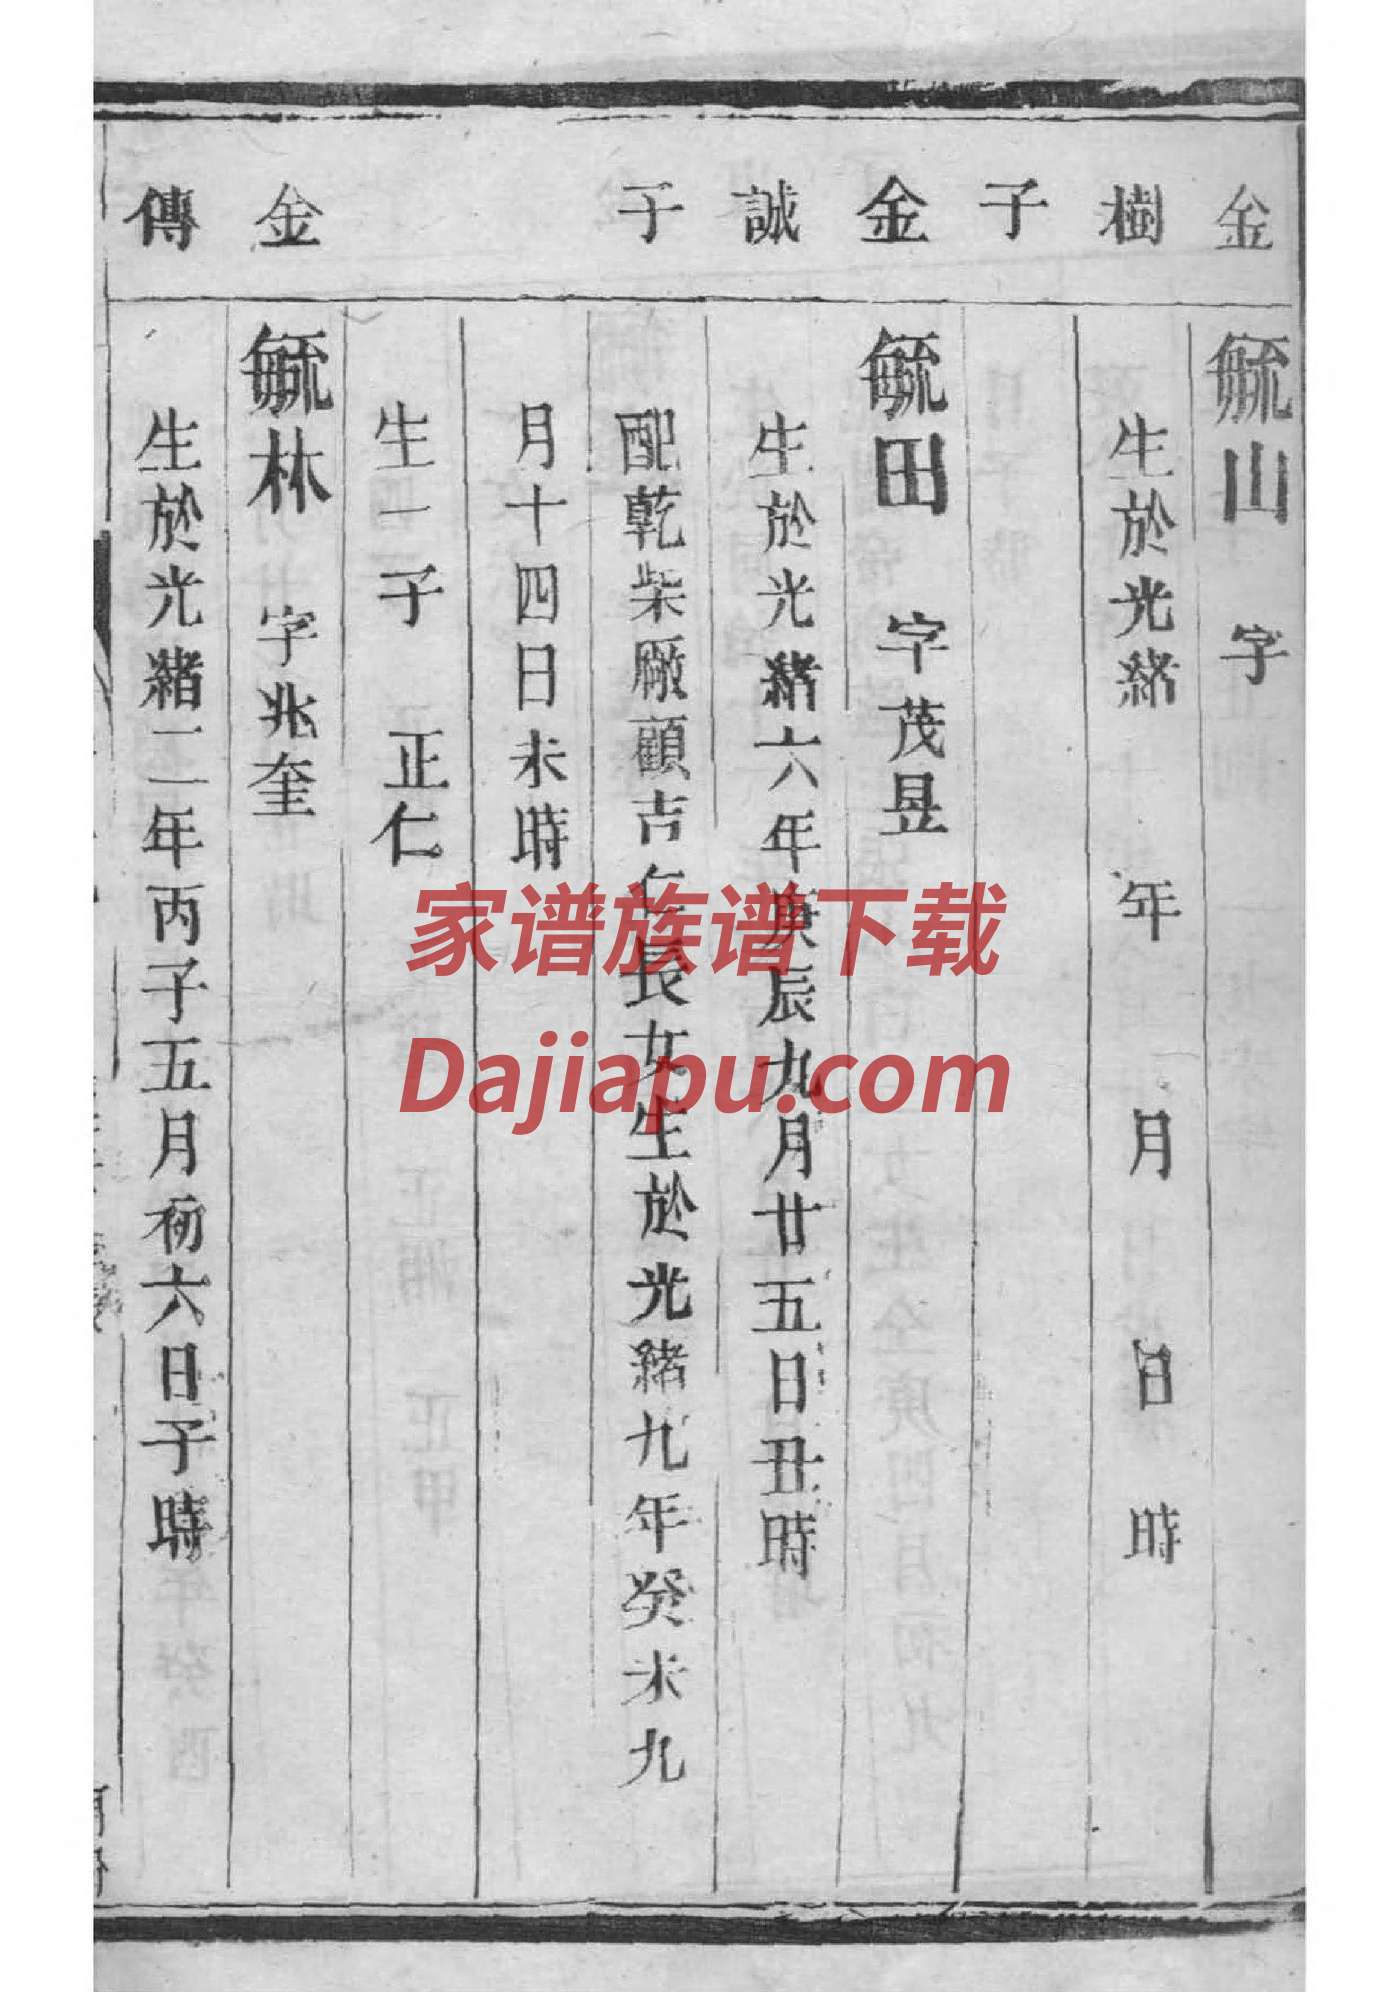 金
毓山　字
樹
生於光緒　年　月　日　時
子
金
毓田　字茂昱
誠
生於光緒六年庚辰九月廿五日丑時
子
配乾柴厰顧吉仁長女生於光緒九年癸未九
月十四日未時
生一子　正仁
金
毓林　字兆奎
傳
生於光緒二年丙子五月初六日子時
家谱族谱下载
Dajiapu.com